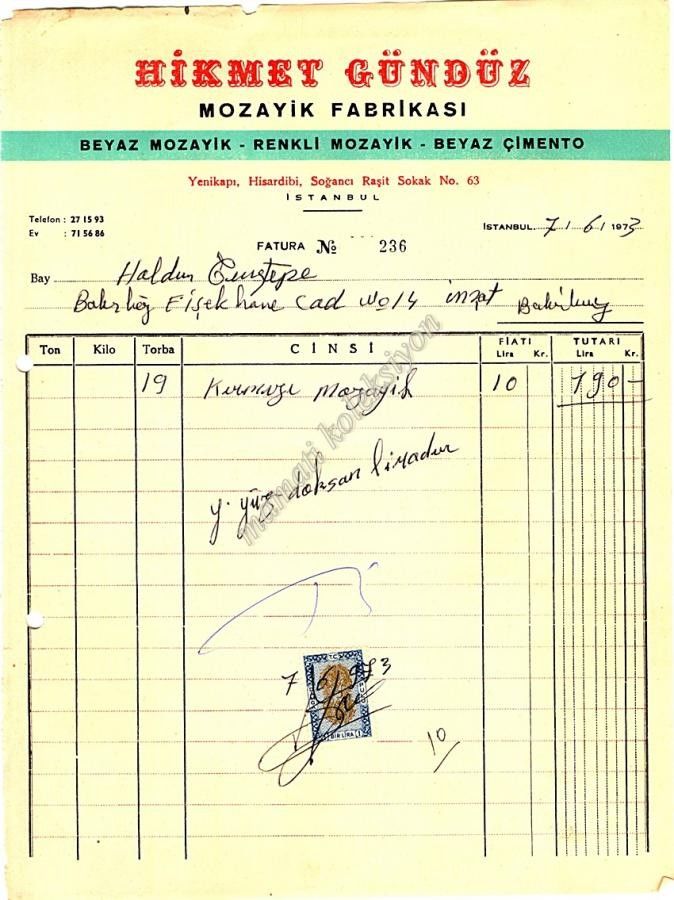 HİKMET GÜNDÜZ
MOZAYİK FABRİKASI
BEYAZ MOZAYİK - RENKLİ MOZAYİK - BEYAZ ÇİMENTO
Yenikapı, Hisardibi, Soğancı Raşit Sokak No. 63
İSTANBUL
Telefon : 27 15 93
Ev : 71 56 86
İSTANBUL. 7/6/1973
FATURA № 236
Bay Haldun
Bakırköy Fişekhane Cad No 14 inşat Bakırköy
Ton Kilo Torba CİNSİ FİATI Lira Kr. TUTARI Lira Kr.
19 Kırmızı mozayik 10 190-
y. yüz doksan liradır
mamati koleksiyon
T.C.
7/6/973
1 BİR LİRA 1
10